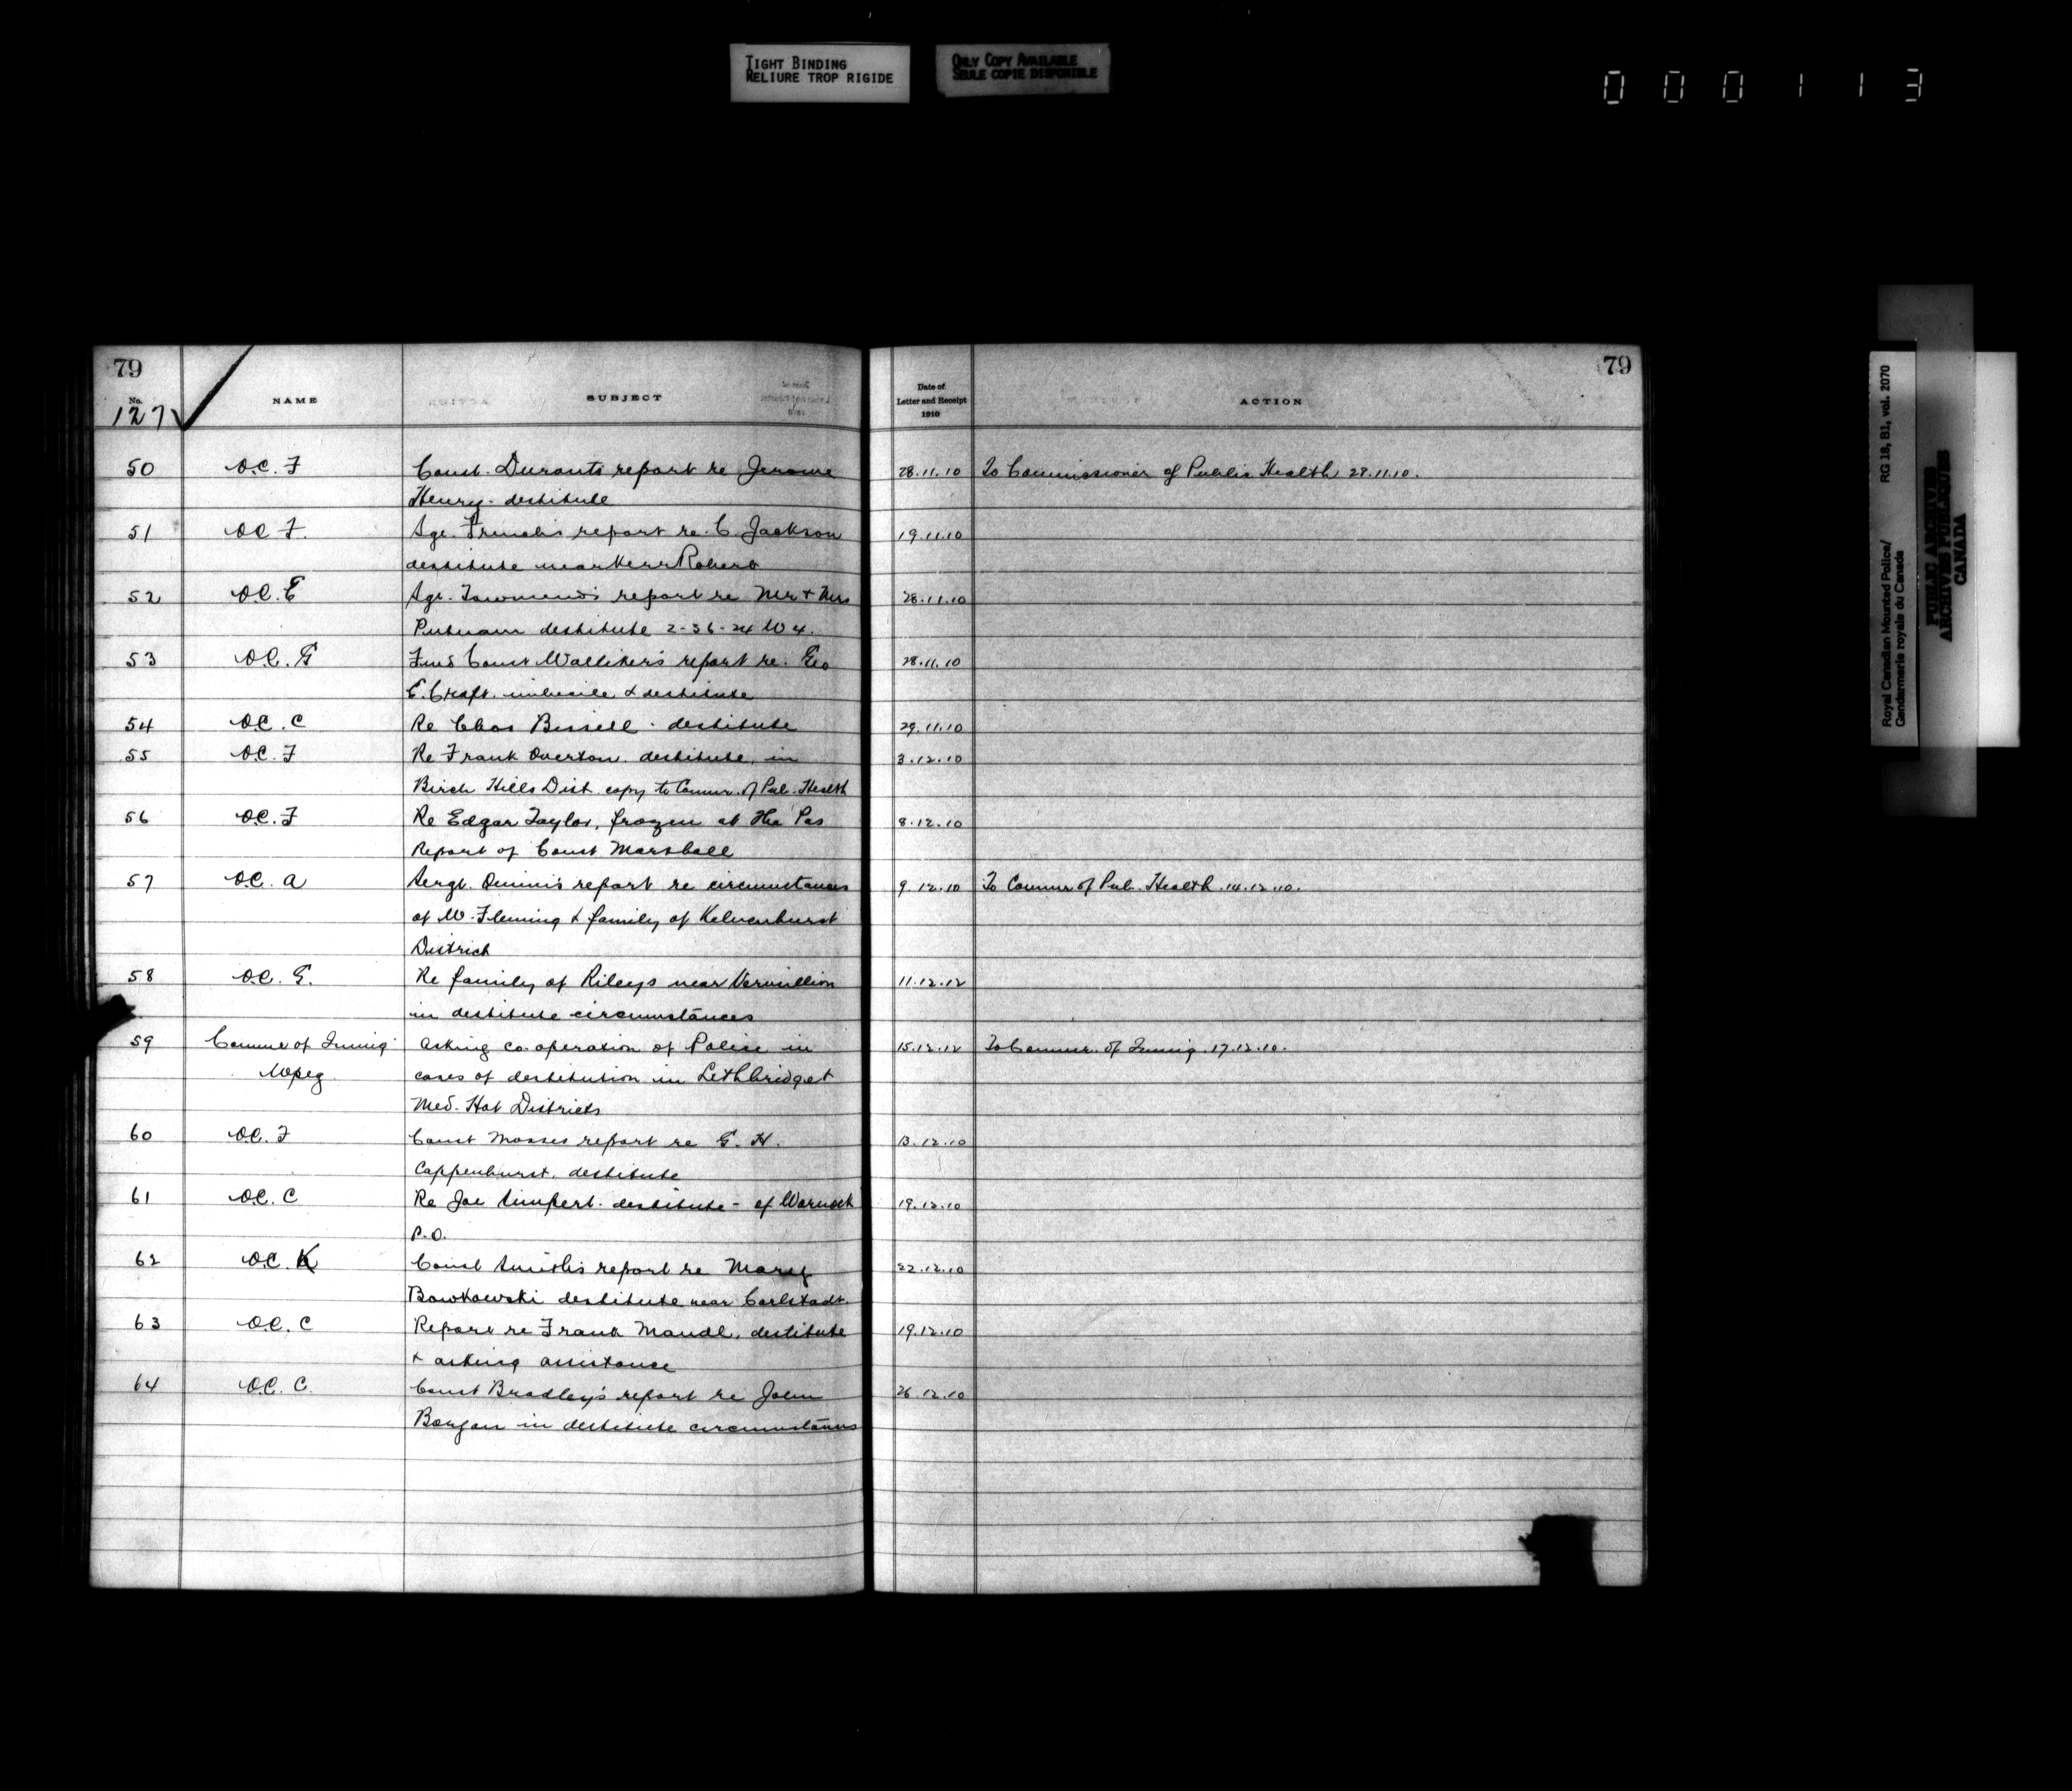 TIGHT BINDING
RELIURE TROP RIGIDE
ONLY COPY AVAILABLE
SEULE COPIE DISPONIBLE
000113
79
No.
127
NAME
SUBJECT
50 O.C. F Const. Durants report re Jerome
Henry - destitute
51 O.C. F. Sgt. Frenchs report re. C. Jackson
destitute near Kerr Robert
52 O.C. E Sgt. Townsend's report re Mr + Mrs
Putnam destitute 2-36-24 W 4.
53 O.C. G Const Wallikers report re. Geo
E. Craft. imbecile & destitute
54 O.C. C Re Chas Bissell - destitute
55 O.C. F Re Frank Overton. destitute, in
Birch Hills Dist. copy to Commr. of Pub. Health
56 O.C. F Re Edgar Taylor, frozen at The Pas
Report of Const Marshall
57 O.C. A Sergt. Dennis report re circumstances
of W. Fleming & family of Kelvenhurst
District
58 O.C. G. Re family of Rileys near Vermillion
in destitute circumstances
59 Commr of Immig Asking co-operation of Police in
Wpeg cases of destitution in Lethbridge +
Med. Hat Districts
60 O.C. F Const Mosses report re G. H.
Cappenhurst. destitute
61 O.C. C Re Joe destitute - of Warnock
P.O.
62 O.C. K Const Smiths report re Mary
Bowkowski destitute near Carlstadt.
63 O.C. C Report re Frank Mandl, destitute
+ asking assistance
64 O.C. C. Const Bradley's report re John
in destitute circumstances
79
Date of
Letter and Receipt
1910
ACTION
28.11.10 To Commissioner of Public Health 28.11.10.
19.11.10
28.11.10
28.11.10
29.11.10
3.12.10
8.12.10
9.12.10 To Commr of Pub. Health. 14.12.10.
11.12.12
15.12.12 To Commr. of Immig. 17.12.10.
13.12.10
19.12.10
22.12.10
19.12.10
26.12.10
Royal Canadian Mounted Police/ RG 18, B1, vol. 2070
Gendarmerie royale du Canada
PUBLIC ARCHIVES
ARCHIVES PUBLIQUES
CANADA